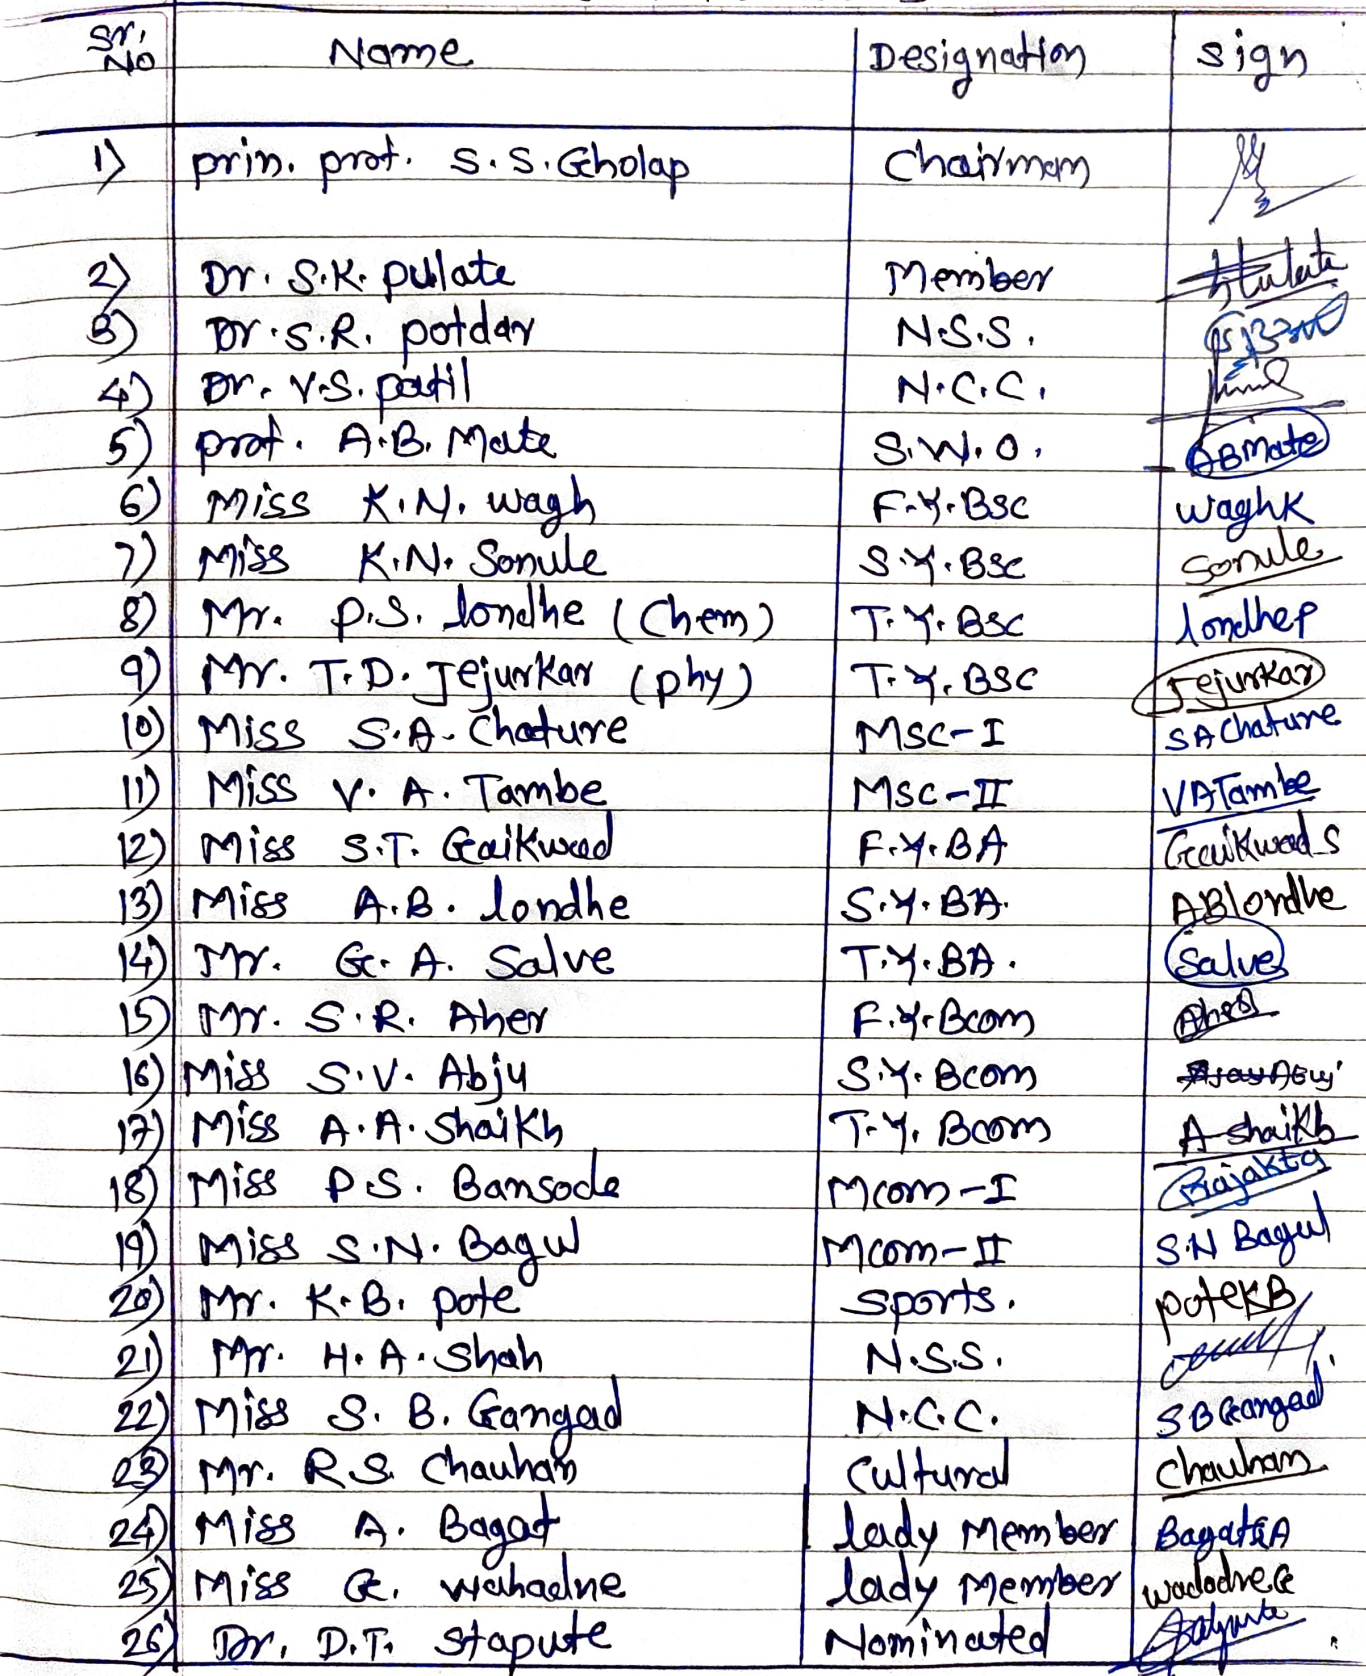 Sr. No Name Designation Sign
1) prin. prof. S.S. Gholap Chairman
2) Dr. S.K. pulate Member
3) Dr. S.R. potdar N.S.S.
4) Dr. V.S. patil N.C.C.
5) prof. A.B. Mate S.W.O. ABMate
6) Miss K.N. wagh F.Y.BSC waghK
7) Miss K.N. Sonule S.Y.BSC Sonule
8) Mr. P.S. londhe (Chem) T.Y.BSC londheP
9) Mr. T.D. Jejurkar (phy) T.Y.BSC Jejurkar
10) Miss S.A. Chature MSC-I SAChature
11) Miss V.A. Tambe MSC-II VATambe
12) Miss S.T. Gaikwad F.Y.BA Gaikwad S
13) Miss A.B. londhe S.Y.BA. ABlondhe
14) Mr. G.A. Salve T.Y.BA. Salve
15) Mr. S.R. Aher F.Y.Bcom Aher
16) Miss S.V. Abju S.Y.Bcom
17) Miss A.A. Shaikh T.Y.Bcom A Shaikh
18) Miss P.S. Bansode Mcom-I Prajakta
19) Miss S.N. Bagul Mcom-II S.N Bagul
20) Mr. K.B. pote Sports. poteKB
21) Mr. H.A. Shah N.S.S.
22) Miss S.B. Gangad N.C.C. SBGangad
23) Mr. R.S. Chauhan Cultural Chauhan
24) Miss A. Bagat lady Member
25) Miss G. lady Member
26) Dr. D.T. Stapute Nominated